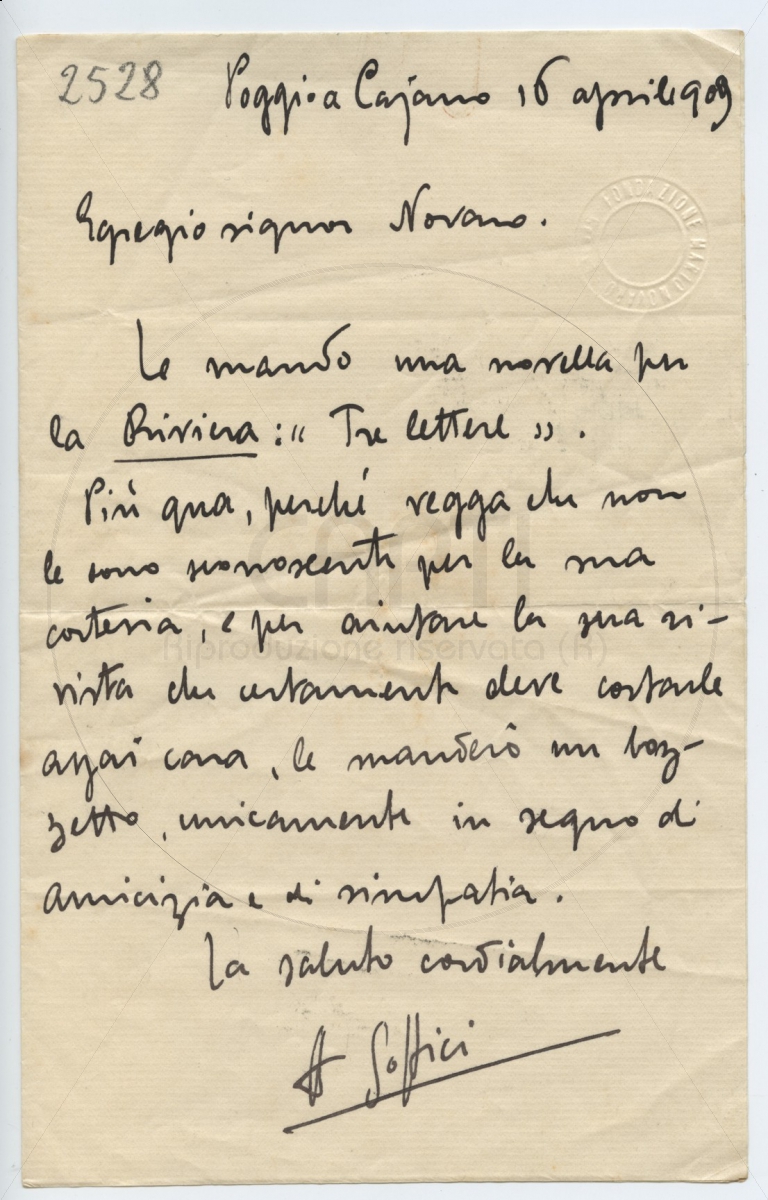 2528
Poggio a Cajano 16 aprile 909
Egregio signor Novaro.
FONDAZIONE MARIO NOVARO
Le mando una novella per
la Riviera: « Tre lettere ».
Più qua, perché vegga che non
le sono sconoscente per la sua
cortesia, e per aiutare la sua ri-
vista che certamente deve costarle
assai cara, le manderò un boz-
zetto, unicamente in segno di
amicizia e di simpatia.
La saluto cordialmente
A Soffici
Riproduzione riservata (R)